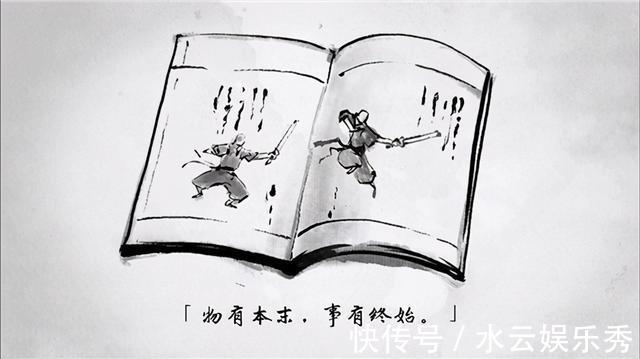 「物有本末，事有终始。」
快传号 / 水云娱乐秀